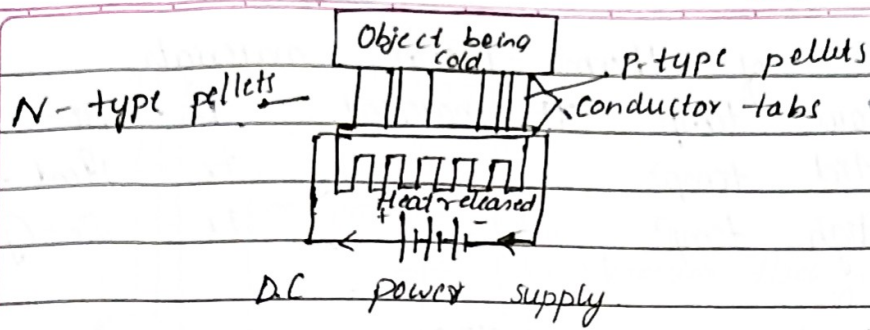 Object being
cold
P-type pellets
N-type pellets
conductor tabs
Heat released
+ -
D.C power supply